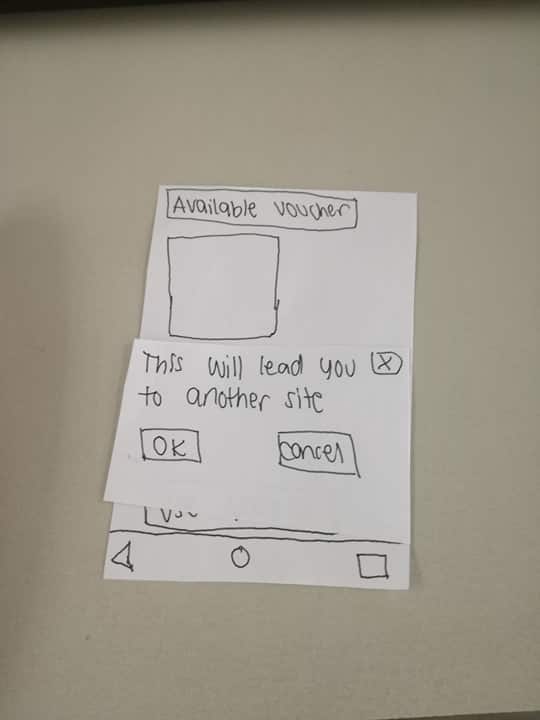 Available voucher
This will lead you X
to another site
OK cancel